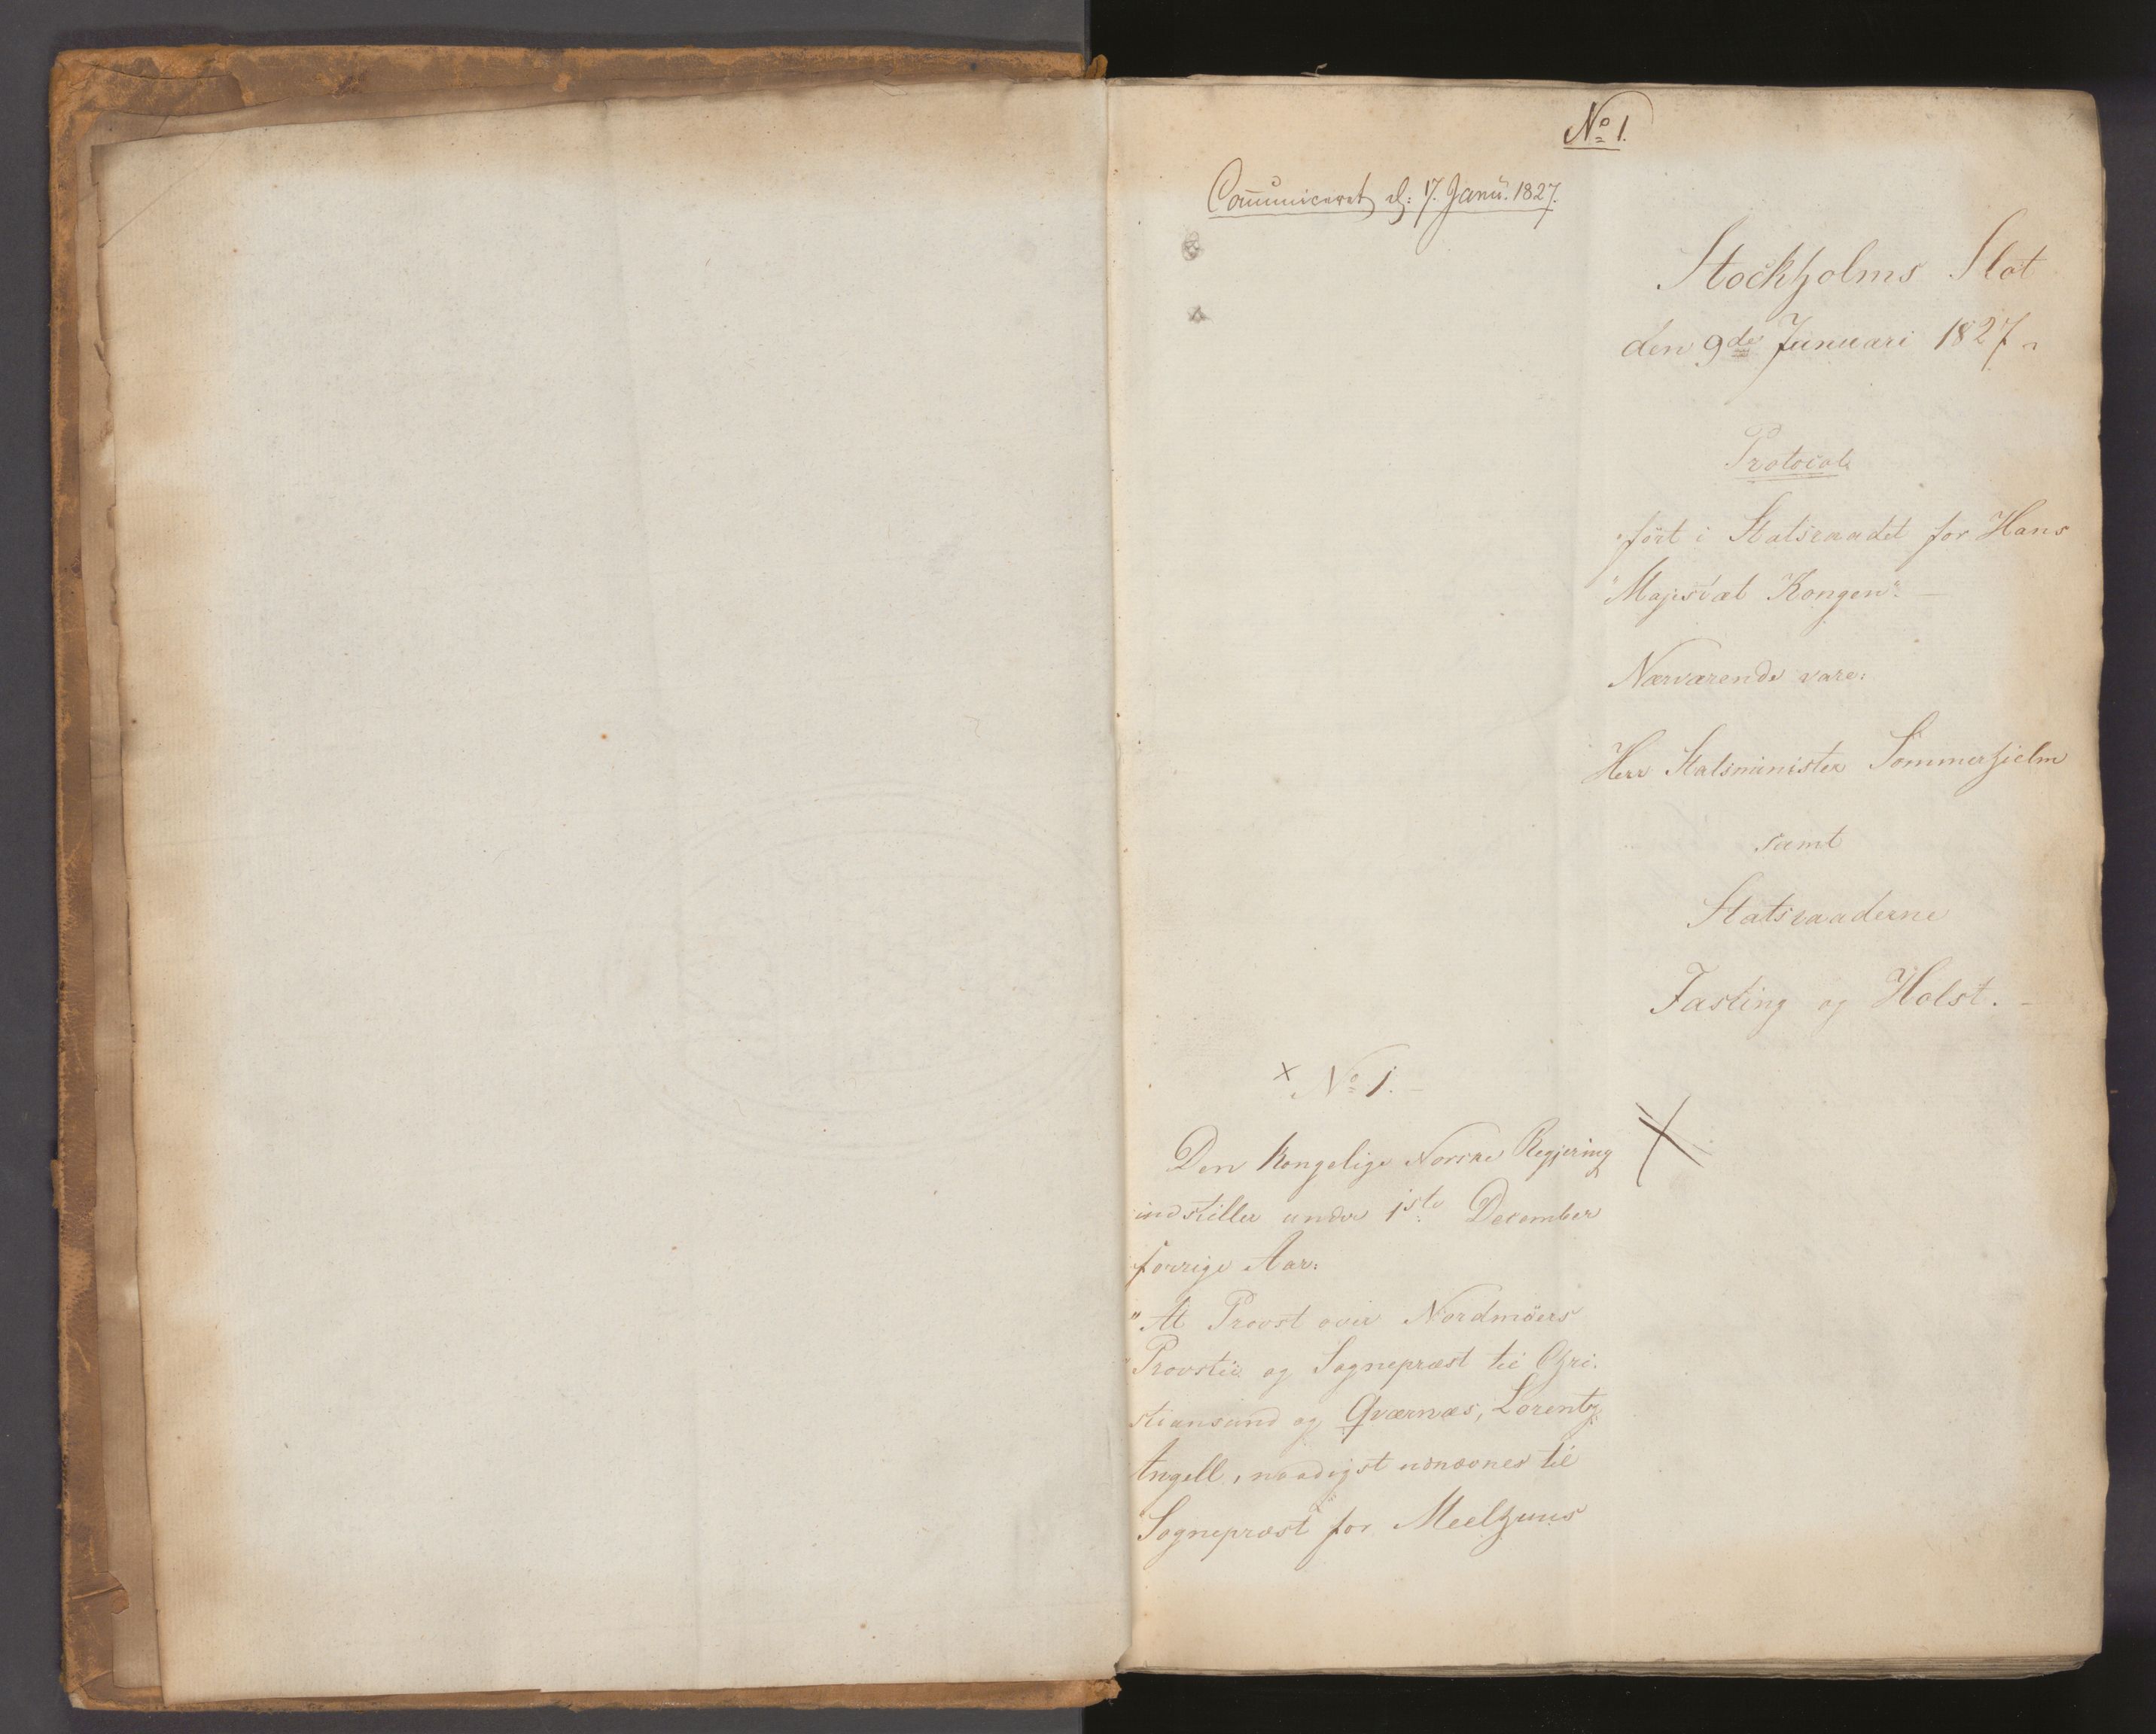 No 1.
Communiceret d: 17. Janu. 1827.
Stockholms Slot
den 9de Januari 1827
Protocol
"ført i Statsraadet for Hans
"Majestæt Kongen". —
Nærværende vare:
Herr Statsminister Sommerhielm
samt
Statsraaderne
Fasting og Holst. —
x No 1. —
Den kongelige Norske Regjering
indstiller under 1ste December
forrige Aar:
"At Provst over Nordmöers
"Provstie og Sognepræst til Chri-
stiansund og Qværnæs, Lorentz
Angell, naadigst udnævnes til
"Sognepræst for Meelhuus